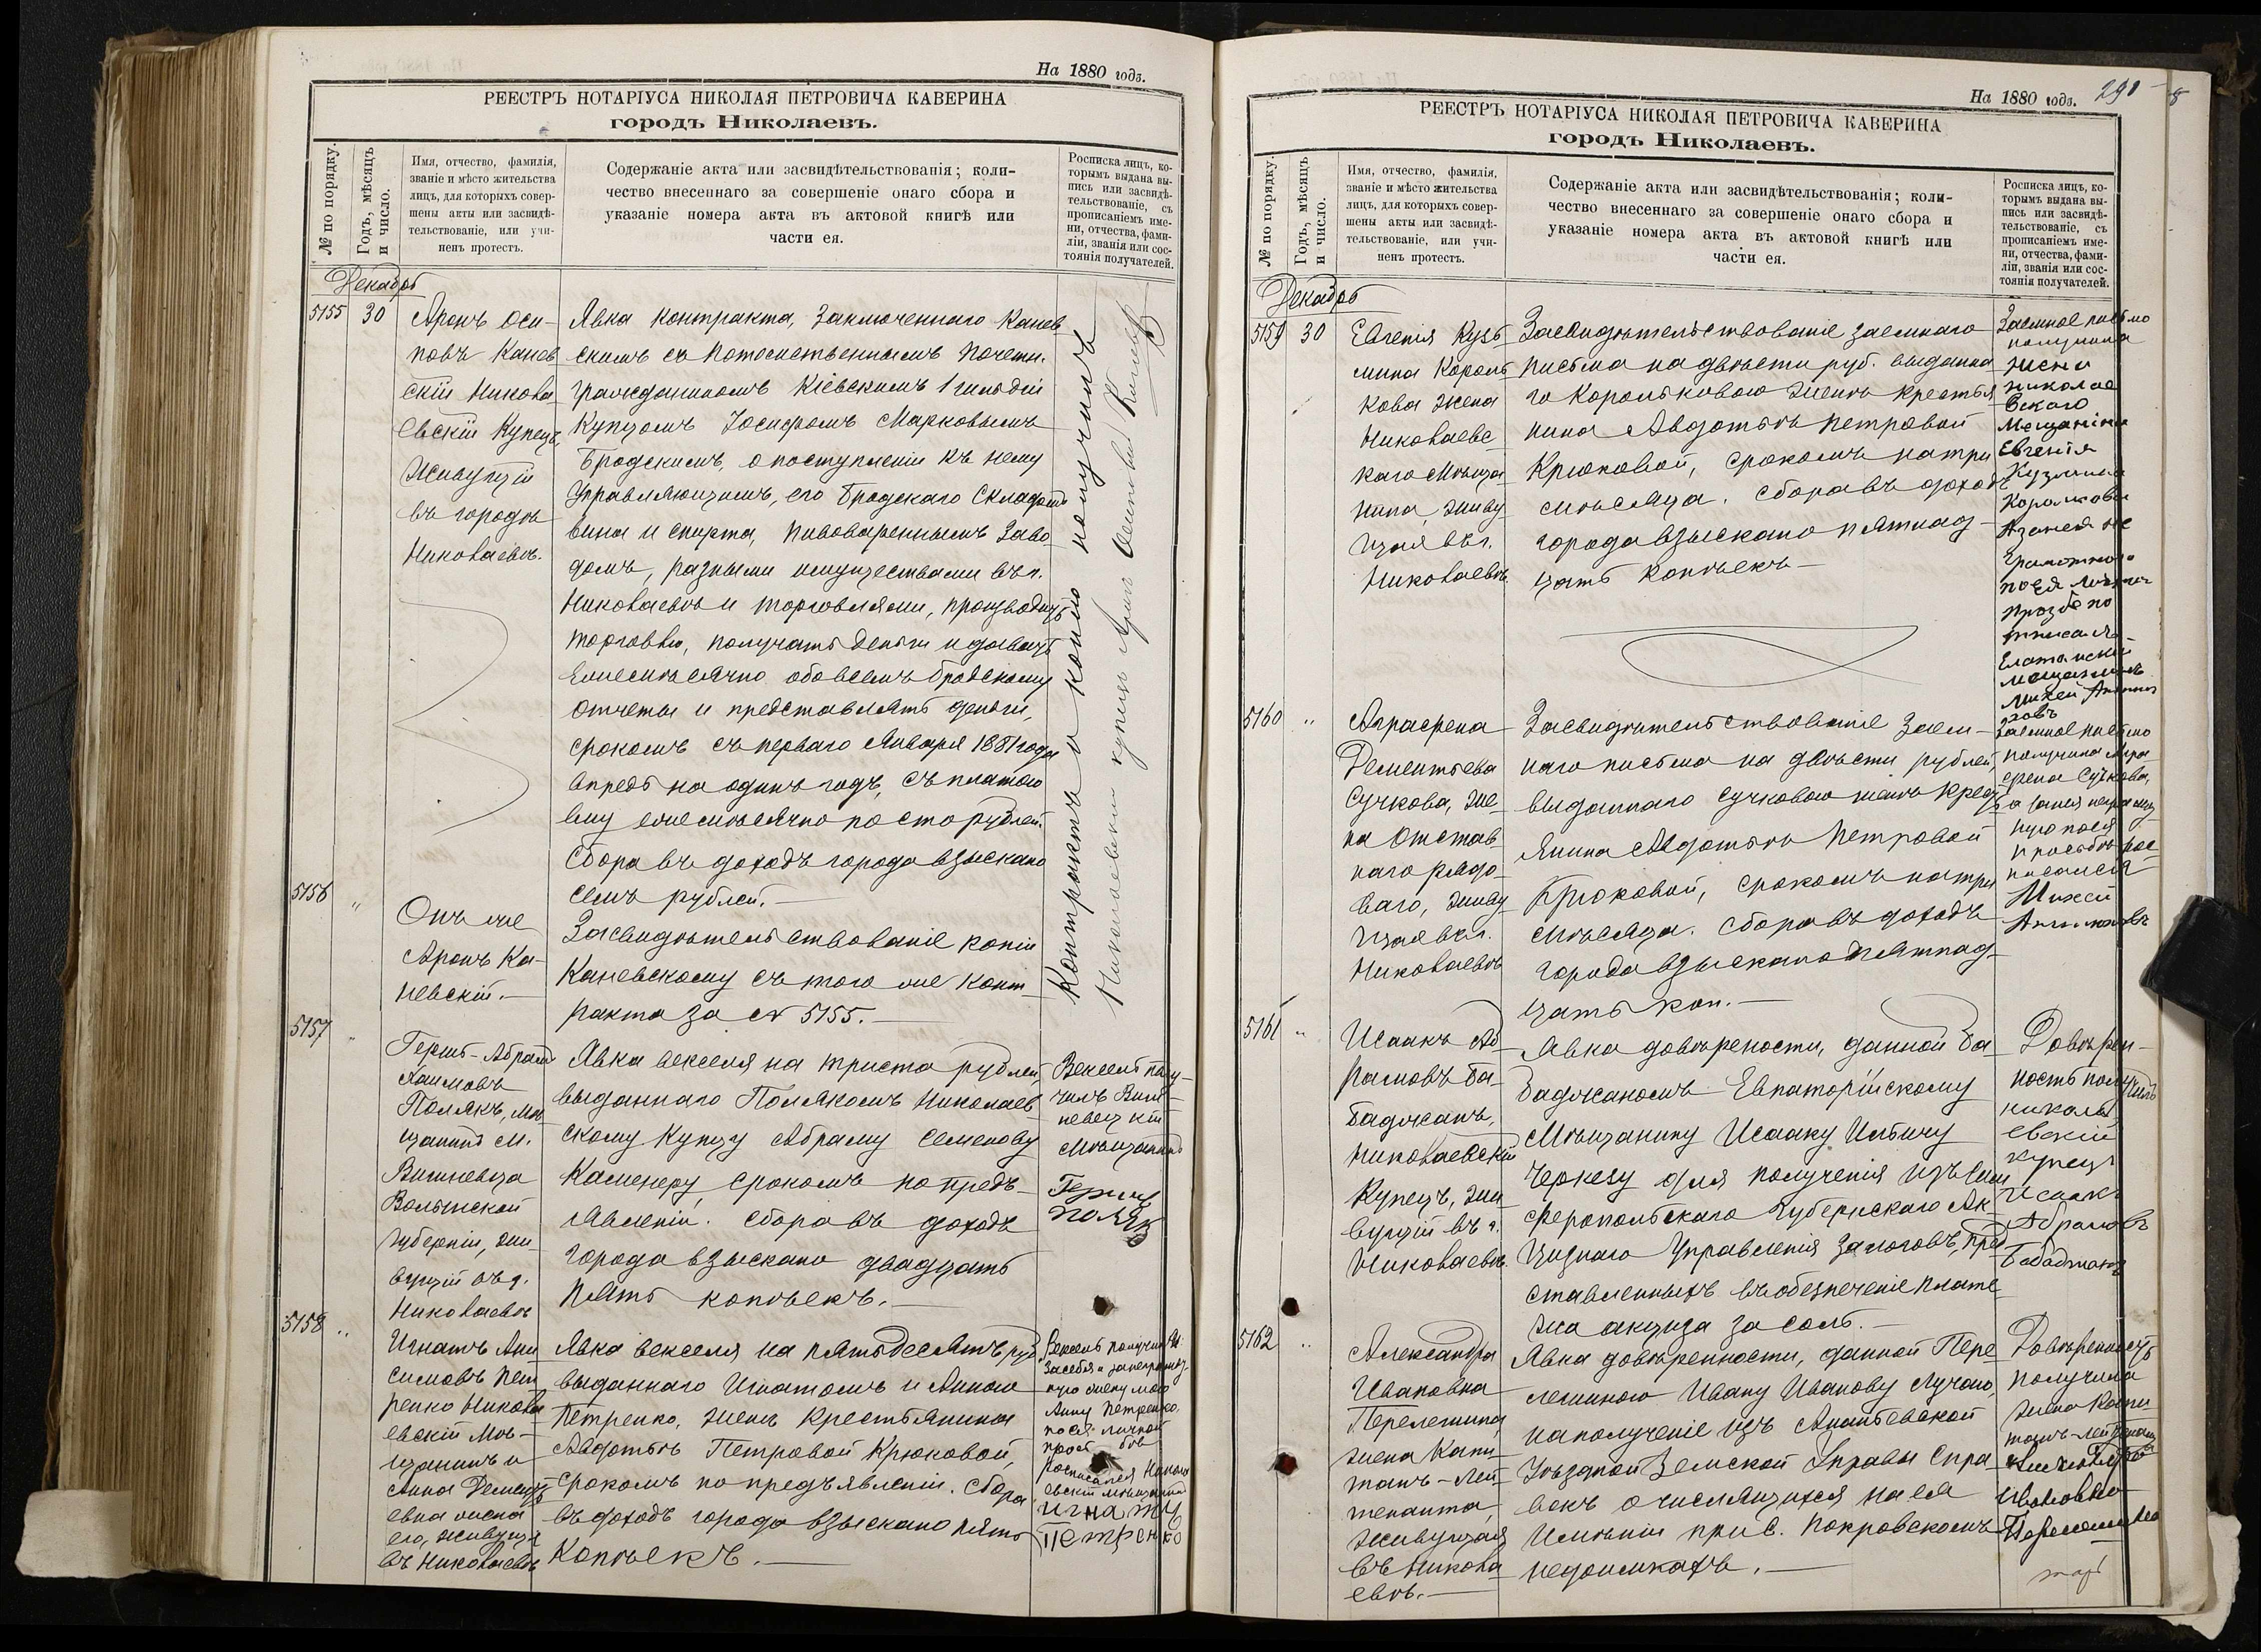 На 1880 годъ.
РЕЕСТРЪ НОТАРІУСА НИКОЛАЯ ПЕТРОВИЧА КАВЕРИНА
городъ Николаевъ.
№ по порядку.
Годъ, мѣсяцъ
и число.
Имя, отчество, фамилія,
званіе и мѣсто жительства
лицъ, для которыхъ совер-
шены акты или засвидѣ-
тельствованіе, или учи-
ненъ протестъ.
Содержаніе акта или засвидѣтельствованія; коли-
чество внесеннаго за совершеніе онаго сбора и
указаніе номера акта въ актовой книгѣ или
части ея.
Росписка лицъ, ко-
торымъ выдана вы-
пись или засвидѣ-
тельствованіе, съ
прописаніемъ име-
ни, отчества, фами-
ліи, званія или сос-
тоянія получателей.
Декабрь
5155
30
Аронъ Оси-
повъ Канев
скій Никола
евскій Купецъ,
живущій
въ городѣ
Николаевѣ.
Явка контракта, заключеннаго Канев
скимъ съ Потомственнымъ Почетн.
гражданиномъ Кіевскимъ 1 гильдіи
Купцомъ Іосифомъ Марковымъ
Бродскимъ, о поступленіи къ нему
Управляющимъ, его Бродскаго складомъ
вина и спирта, пивовареннымъ заво-
домъ, разными имуществами въ г.
Николаевѣ и торговлями, производить
торговлю, получать деньги и давать
ежемѣсячно обо всемъ Бродскому
отчеты и представлять деньги,
срокомъ съ перваго Января 1881 года
впредь на одинъ годъ, съ платою
ему ежемѣсячно по сто рублей.
Сбора въ доходъ города взыскано
семь рублей.—
Контрактъ и копію получилъ
Николаевскій купецъ Аронъ Осиповъ Каневскій
5156
"
Онъ же
Аронъ Ка-
невскій.—
Засвидѣтельствованіе копіи
Каневскому съ того же конт-
ракта за № 5155.—
5157
"
Гершъ-Абрамъ
Хаимовъ
Полякъ, мѣ-
щанинъ м.
Вишневца
Волынской
Губерніи, жи-
вущій въ г.
Николаевѣ
Явка векселя на триста рублей,
выданнаго Полякомъ Николаев
скому Купцу Абраму Семенову
Каменеру, срокомъ по предъ-
явленіи. Сбора въ доходъ
города взыскано двадцать
пять копѣекъ.—
Вексель полу-
чилъ Виш-
невецкій
мѣщанинъ
Гершъ
Поляк
5158
"
Игнатъ Ани
симовъ Пет
ренко Никола
евскій Мѣ-
щанинъ и
Анна Дементь
евна жена
его, живущія
въ Николаевѣ
Явка векселя на пятьдесятъ руб.
выданнаго Игнатомъ и Анною
Петренко, женѣ крестьянина
Авдотьѣ Петровой Крюковой,
срокомъ по предъявленіи. Сбора
въ доходъ города взыскано пять
копѣекъ.—
Вексель получилъ
за себя и за неграмот
ную жену мою
Анну Петренко
по ея личной
прось бѣ
росписался Никола
евскій мѣщанинъ
Игнатъ
Петренко
На 1880 годъ.
РЕЕСТРЪ НОТАРІУСА НИКОЛАЯ ПЕТРОВИЧА КАВЕРИНА
городъ Николаевъ.
№ по порядку.
Годъ, мѣсяцъ
и число.
Имя, отчество, фамилія,
званіе и мѣсто жительства
лицъ, для которыхъ совер-
шены акты или засвидѣ-
тельствованіе, или учи-
ненъ протестъ.
Содержаніе акта или засвидѣтельствованія; коли-
чество внесеннаго за совершеніе онаго сбора и
указаніе номера акта въ актовой книгѣ или
части ея.
Росписка лицъ, ко-
торымъ выдана вы-
пись или засвидѣ-
тельствованіе, съ
прописаніемъ име-
ни, отчества, фами-
ліи, званія или сос-
тоянія получателей.
Декабрь
5159
30
Евгенія Кузь
мина Король
кова жена
Николаевс
каго Мѣща
нина, живу
щая въ г.
Николаевѣ
Засвидѣтельствованіе заемнаго
письма на двѣсти руб. выданна
го Корольковою женѣ крестья
нина Авдотьѣ Петровой
Крюковой, срокомъ на три
мѣсяца. Сбора въ доходъ
города взыскано пятнад-
цать копѣекъ—
Заемное письмо
получила
жена
николае
вского
Мещанина
Евгенія
Кузмина
Королкова
А за нея не
грамотною
по ея личной
прозбе по
тписался
Елатомскій
мещанинъ
Михей
5160
"
Аграфена
Дементьева
Сучкова, же
на отстав
наго рядо
ваго, живу
щая въ г.
Николаевѣ
Засвидѣтельствованіе заем-
наго письма на двѣсти рублей,
выданнаго Сучковою женѣ кресть
янина Авдотьѣ Петровой
Крюковой, срокомъ на три
мѣсяца. Сбора въ доходъ
города взыскано пятнад-
цать коп.—
заемное письмо
получила Агра
фена Сучкова,
а за нея неграмот
ную по ея
просьбѣ рос
писался
Михей
5161
"
Исаакъ Аб
рамовъ Ба-
баджанъ,
Николаевскій
Купецъ, жи
вущій въ г.
Николаевѣ.
Явка довѣрености, данной Ба-
баджаномъ Евпаторійскому
Мѣщанину Исааку Ильичу
Черкезу для полученія изъ Сим
феропольскаго Губернскаго Ак-
цизнаго Управленія залоговъ, пред
ставленныхъ въ обезпеченіе плате
жа акциза за соль.—
Довѣрен-
ность получилъ
николаевскій
купецъ
Исаакъ
Абрамовъ
Бабаджанъ
5162
"
Александра
Ивановна
Перелешина,
жена Капи
танъ-Лей
тенанта,
живущая
въ Никола
евѣ.—
Явка довѣренности, данной Пере-
лешиною Ивану Иванову Лучано,
на полученіе изъ Ананьевской
Уѣздной Земской Управы спра
вокъ о числящихся на ея
имѣніи при с. Покровскомъ
недоимкахъ.—
Довѣренность
получила
жена Капи
танъ-лейтенанта
Александра
Ивановна
Перелешина